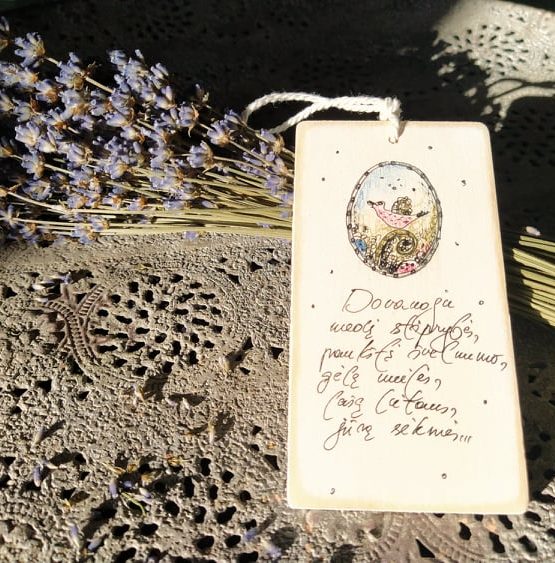 Dovanoju
medį stiprybės,
paukštį švelnumo,
gėlę meilės,
lašą lietaus,
jūrą sėkmės...